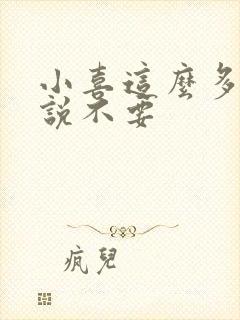 小喜這麼多
說不要
瘋兒